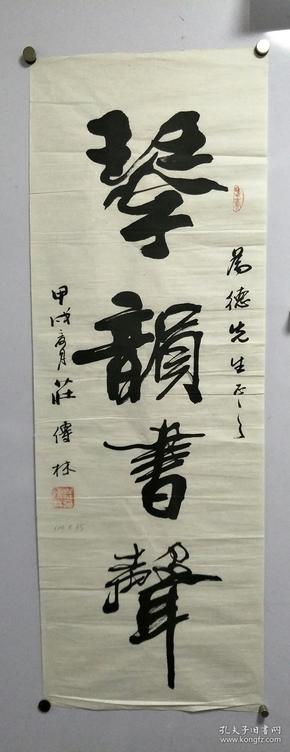 琴韻書聲
德先生正之
甲戌 月 莊傳林
孔夫子旧书网
kongfz.com